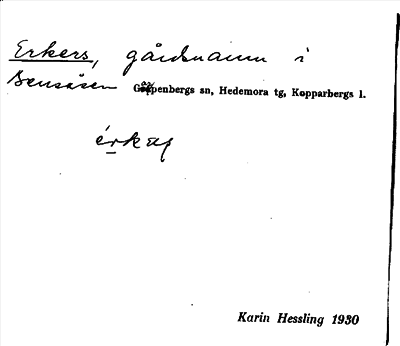 Erkers, gårdsnamn i
Bensåsen Garpenbergs sn, Hedemora tg, Kopparbergs l.
Karin Hessling 1930